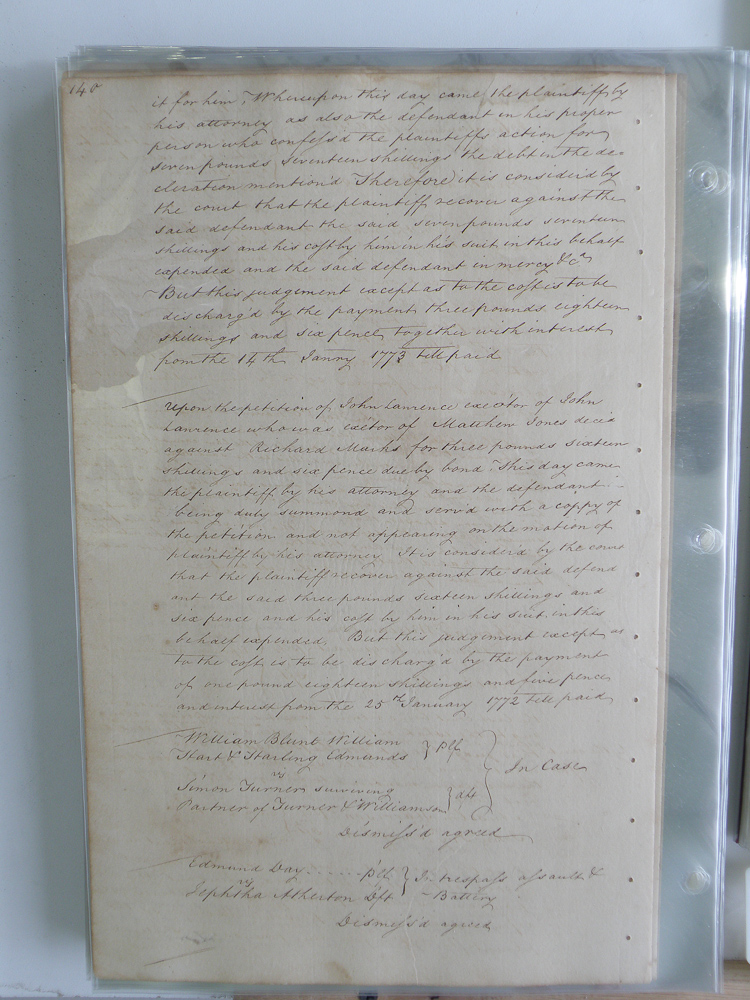 140
it for him, Whereupon this day came the plaintiff by
his attorney as also the defendant in his proper
person who confess'd the plaintiffs action for
seven pounds seventeen shillings the debt in the de-
claration mention'd Therefore it is consider'd by
the court that the plaintiff recover against the
said defendant the said seven pounds seventeen
shillings and his cost by him in his suit in this behalf
expended and the said defendant in mercy &ca
But this judgement except as to the cost is to be
discharg'd by the payment three pounds eighteen
shillings and six pence together with interest
from the 14th Janry 1773 till paid
Upon the petition of John Lawrence exec'tor of John
Lawrence who was exector of Matthew Jones dec'd
against Richard Marks for three pounds sixteen
shillings and six pence due by bond. This day came
the plaintiff by his attorney and the defendant
being duly summond and serv'd with a coppy of
the petition and not appearing on the motion of
plaintiff by his attorney It is consider'd by the court
that the plaintiff recover against the said defend
ant the said three pounds sixteen shillings and
six pence and his cost by him in his suit in this
behalf expended. But this judgement except as
to the cost is to be discharg'd by the payment
of one pound eighteen shillings and five pence
and interest from the 25th January 1772 till paid
William Blunt William
Hart & Starling Edmunds } Plt
vs } In Case
Simon Turner surviving
Partner of Turner & Williamson } dft
Dismiss'd agreed
Edmund Day ...... Plt } In trespass assault &
vs
Jephtha Atherton Dft Battery
Dismiss'd agreed